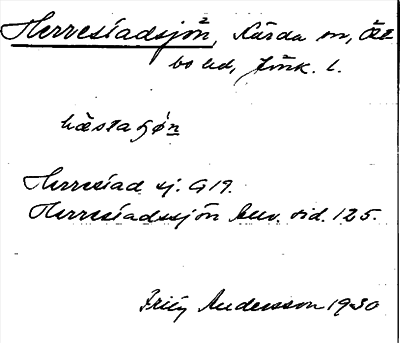 Herrestadsjön, Kärda sn, Öst
bo hd, Jönk. l.
hæstaʃøn
Herrestad sj. G 19.
Herrestadssjön Aev. sid. 125.
Fritz Andersson 1930